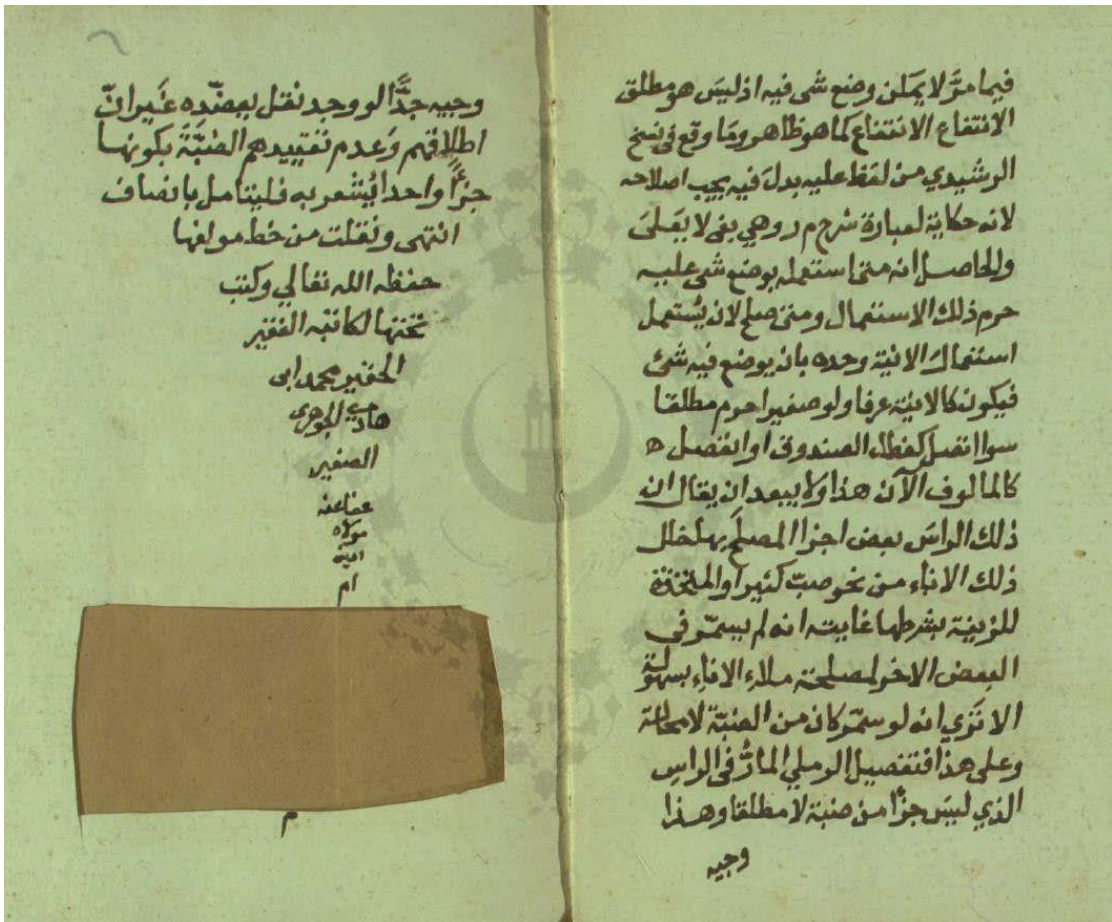 فيما مرَّ لا يمكن وضع شى فيه اذ ليس هو مطلق
الانتفاع الانتفاع كما هو ظاهر وما وقع فى نسخ
الرشيدي من لفظ عليه بدل فيه يجب اصلاحه
لانه حكاية لعبارة شرح م ر وهي بفى لا بعلى
والحاصل انه متى استعمله بوضع شى عليه
حرم ذلك الاستعمال ومتى صلح لان يُستعمل
استعمال الانية وحده بان يوضع فيه شئ
فيكون كالانية عرفا ولو صغيرا حرم مطلقا
سوا اتصل كغطاء الصندوق او انفصل ه
كالمالوف الآن هذا ولا يبعد ان يقال ان
ذلك الراس بعض اجزا المصلَح بها خلل
ذلك الاناء من نحو صبّ كثيرا والمتخذة
للزينة بشرطها غايته انه لم يسمّر فى
البعض الاخر لمصلحة ملاء الاناء بسهولة
الا تَرَي انه لو سمّر كان من الضبّة لا محالة
وعلى هذا فتفصيل الرملي المارُّ فى الراس
الذي ليس جزأ من ضبة لا مطلقا وهذا
وجيه
وجيه جدًّا لو وجد نقل يعضّده غير انّ
اطلاقهم وَعدم تقييدهم الضبَّة بكونها
جزأً واحدا يُشعر به فليتامل بانصاف
انتهى ونقلت من خط مولفها
حفظه الله تعالي وكتب
نختها لكاتبه الفقير
الحقير محمد ابى
هادي الجوهرى
الصغير
عفا عنه
مولاه
امين
ام
م